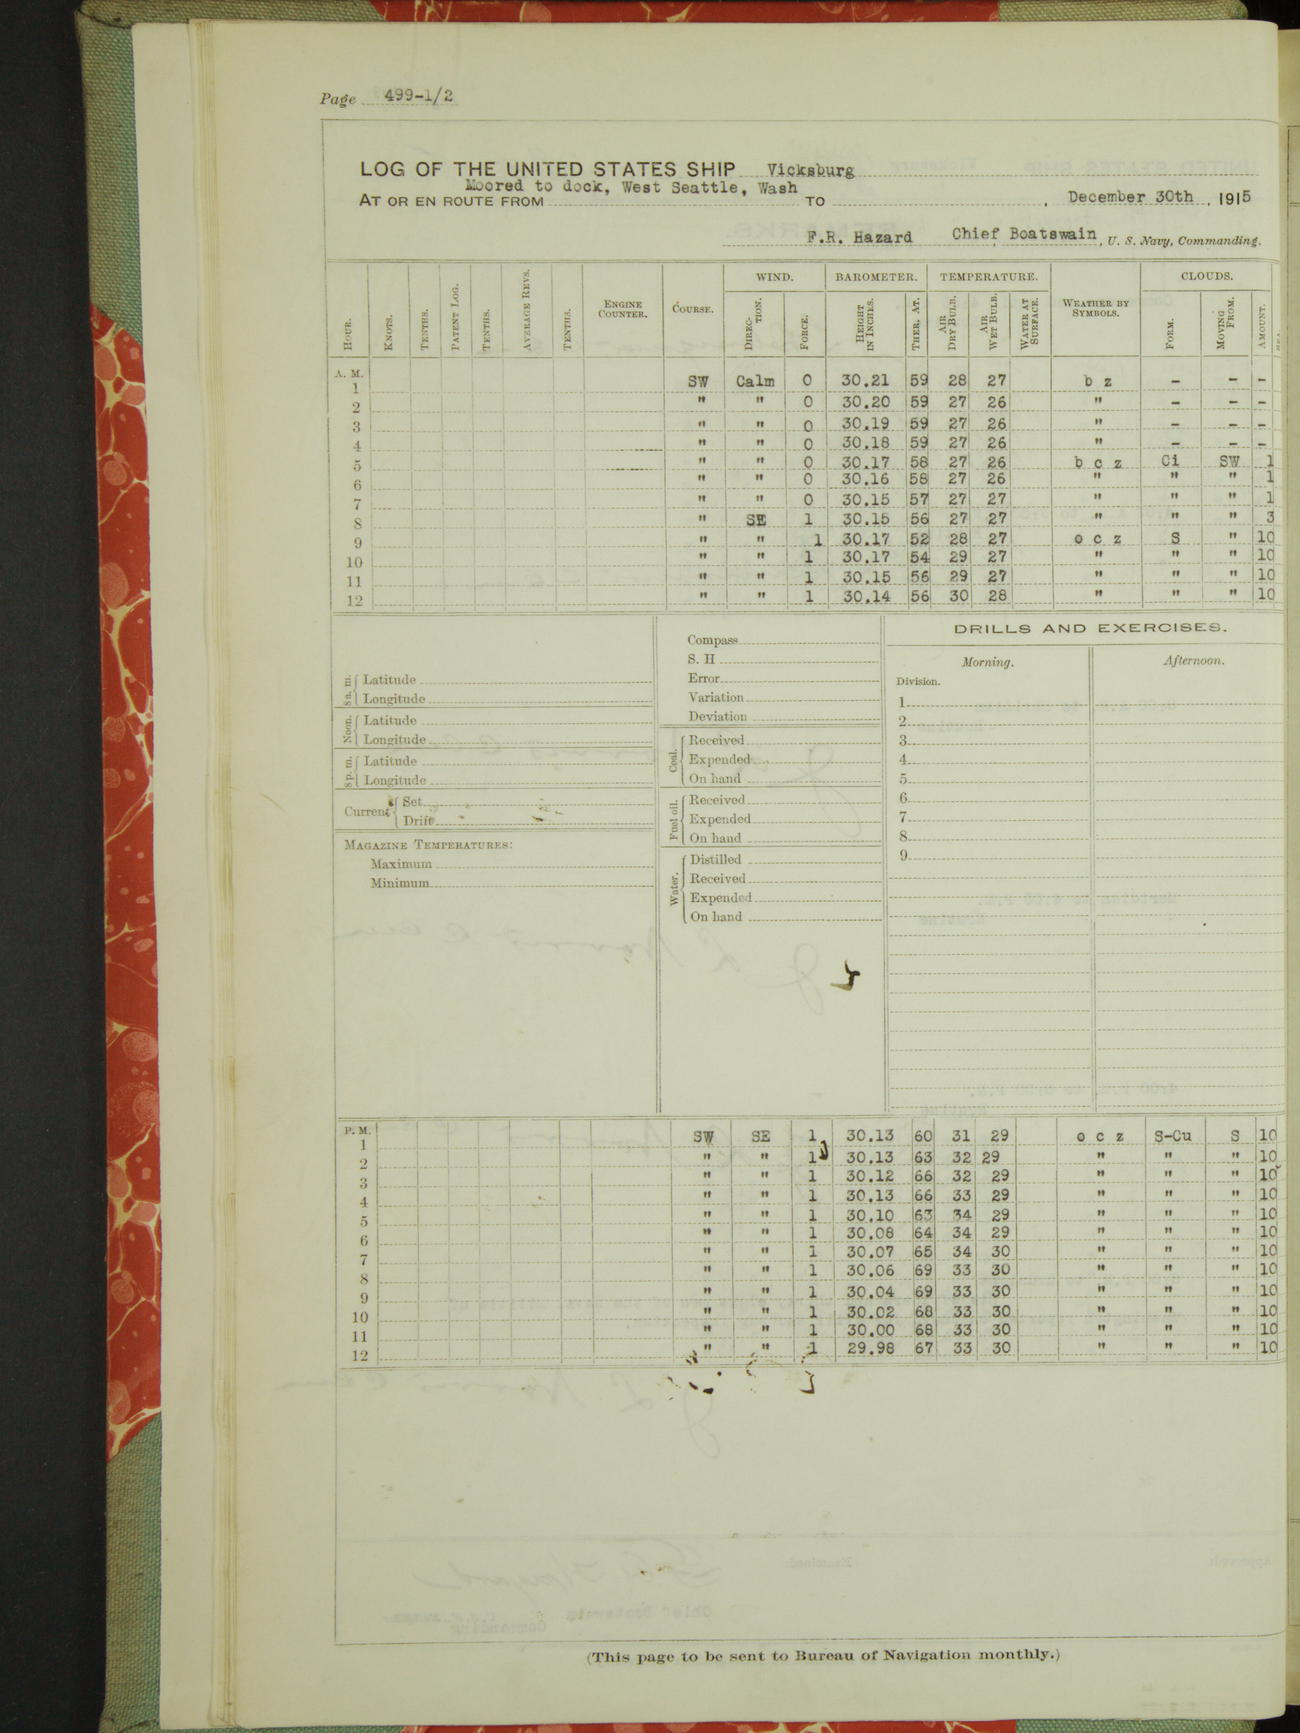 Page 499-1/2
LOG OF THE UNITED STATES SHIP Vicksburg
Moored to dock, West Seattle, Wash
AT OR EN ROUTE FROM TO , December 30th , 1915
F.R. Hazard Chief Boatswain, U. S. Navy, Commanding.
WIND. BAROMETER. TEMPERATURE. CLOUDS.
HOUR. KNOTS. TENTHS. PATENT LOG. TENTHS. AVERAGE REVS. TENTHS. ENGINE COUNTER. COURSE. DIRECTION. FORCE. HEIGHT IN INCHES. THER. AT. AIR DRY BULB. AIR WET BULB. WATER AT SURFACE. WEATHER BY SYMBOLS. FORM. MOVING FROM. AMOUNT.
A. M.
1 SW Calm 0 30.21 59 28 27 b z - - -
2 " " 0 30.20 59 27 26 " - - -
3 " " 0 30.19 59 27 26 " - - -
4 " " 0 30.18 59 27 26 " - - -
5 " " 0 30.17 58 27 26 b c z Ci SW 1
6 " " 0 30.16 58 27 26 " " " 1
7 " " 0 30.15 57 27 27 " " " 1
8 " SE 1 30.15 56 27 27 " " " 3
9 " " 1 30.17 52 28 27 o c z S " 10
10 " " 1 30.17 54 29 27 " " " 10
11 " " 1 30.15 56 29 27 " " " 10
12 " " 1 30.14 56 30 28 " " " 10
8 a. m. Latitude
Longitude
Noon. Latitude
Longitude
8 p. m. Latitude
Longitude
Current Set
Drift
MAGAZINE TEMPERATURES:
Maximum
Minimum
Compass
S. H
Error
Variation
Deviation
Coal. Received
Expended
On hand
Fuel oil. Received
Expended
On hand
Water. Distilled
Received
Expended
On hand
DRILLS AND EXERCISES.
Morning. Afternoon.
Division.
1
2
3
4
5
6
7
8
9
P. M.
1 SW SE 1 30.13 60 31 29 o c z S-Cu S 10
2 " " 1 30.13 63 32 29 " " " 10
3 " " 1 30.12 66 32 29 " " " 10
4 " " 1 30.13 66 33 29 " " " 10
5 " " 1 30.10 63 34 29 " " " 10
6 " " 1 30.08 64 34 29 " " " 10
7 " " 1 30.07 65 34 30 " " " 10
8 " " 1 30.06 69 33 30 " " " 10
9 " " 1 30.04 69 33 30 " " " 10
10 " " 1 30.02 68 33 30 " " " 10
11 " " 1 30.00 68 33 30 " " " 10
12 " " 1 29.98 67 33 30 " " " 10
(This page to be sent to Bureau of Navigation monthly.)